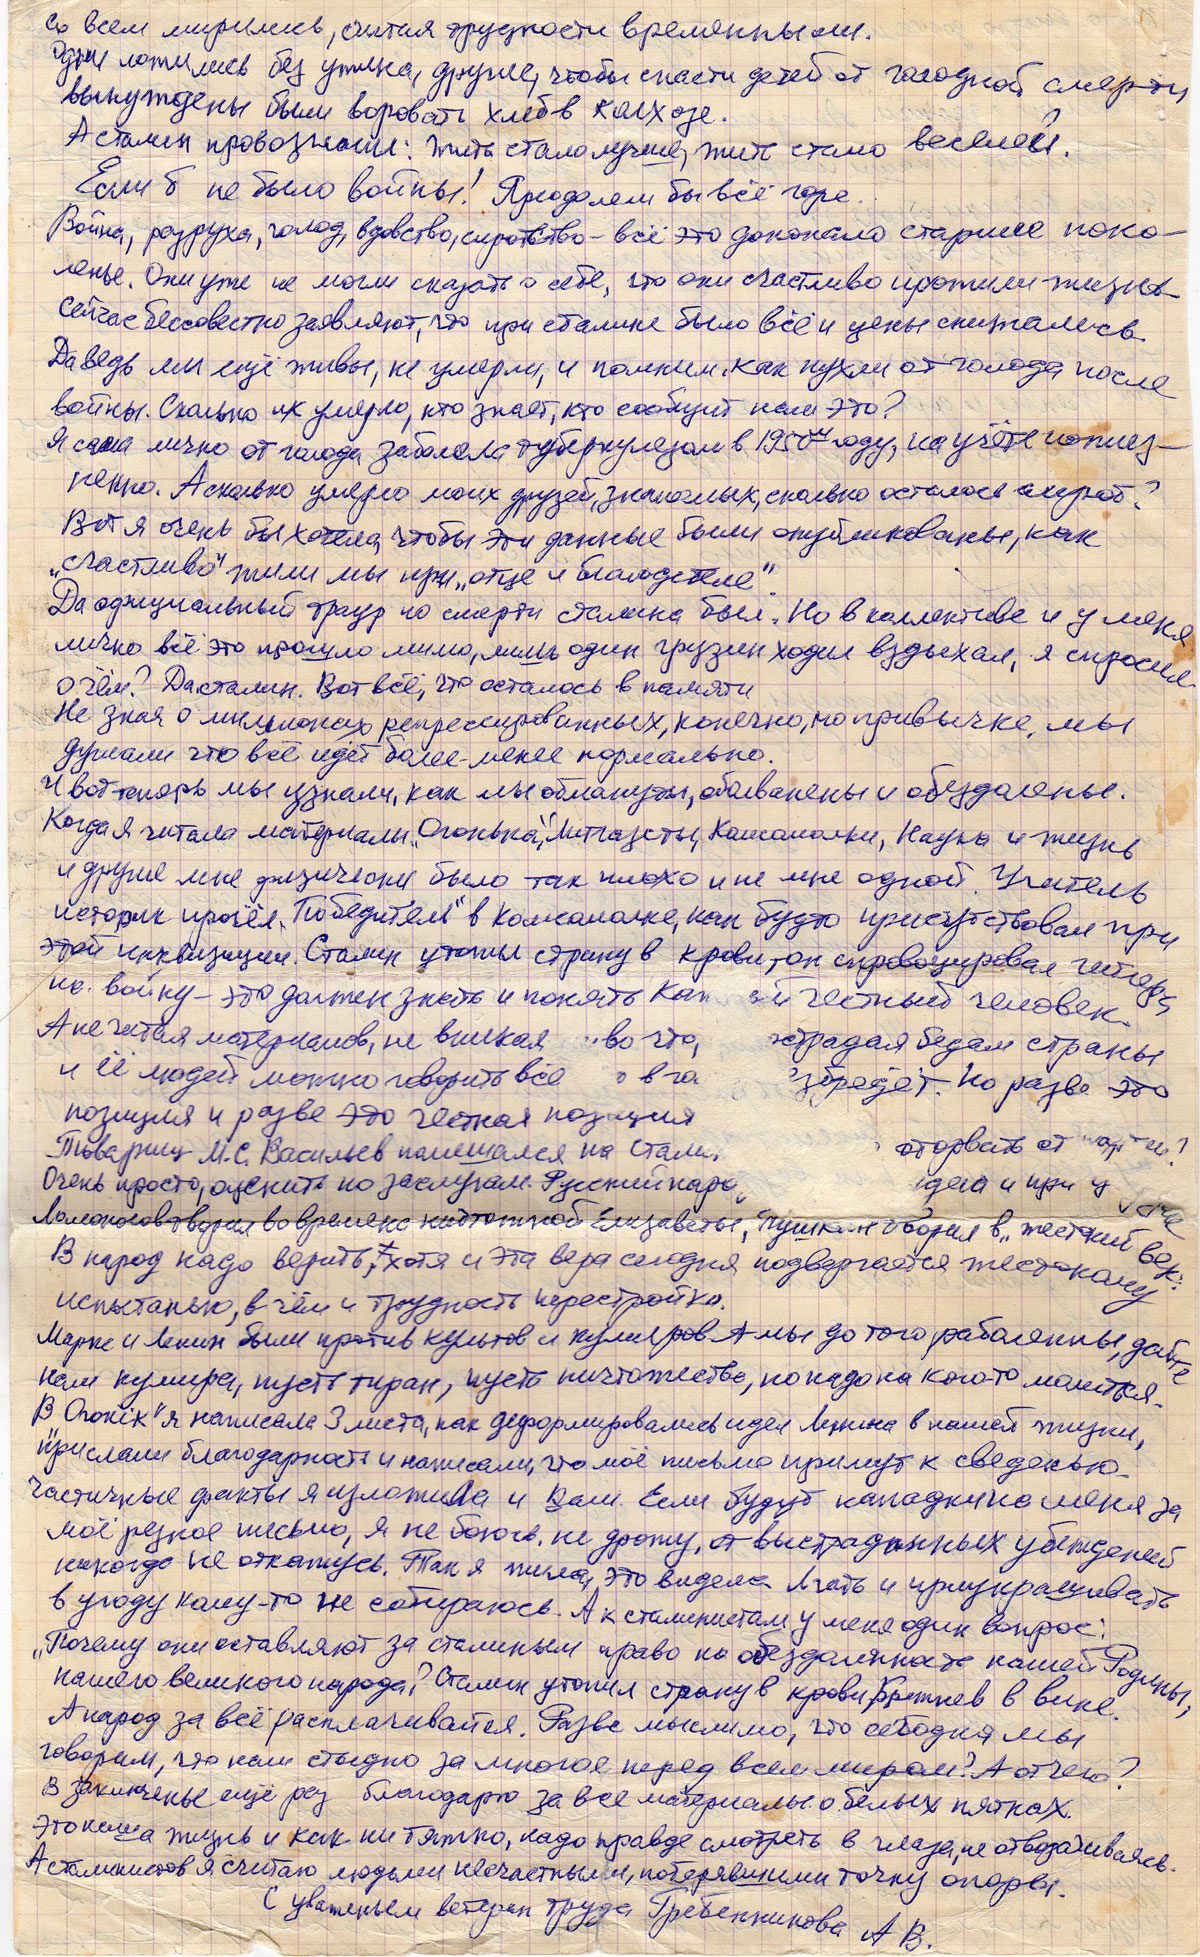 Со всем мирились, считая трудности временными.
Одни ложились без ужина, другие, чтобы спасти детей от голодной смерти,
вынуждены были воровать хлеб в колхозе.
А сталин провозгласил: Жить стало лучше, жить стало веселей.
Если б не было войны! Преодолели бы всё горе.
Война, разруха, голод, вдовство, сиротство – всё это доконало старшее поко-
ленье. Они уже не могли сказать о себе, что они счастливо прожили жизнь
Сейчас бессовестно заявляют, что при сталине было всё и цены снижались.
Да ведь мы ещё живы, не умерли, и помним как пухли от голода после
войны. Сколько их умерло, кто знает, кто сообщит нам это?
Я сама лично от голода заболела туберкулезом в 1950м году, на учёте пожиз-
ненно. А сколько умерло моих друзей, знакомых, сколько осталось сирот?
Вот я очень бы хотела, чтобы эти данные были опубликованы, как
„счастливо" жили мы при „отце и благодетеле"
Да официальный траур по смерти сталина был. Но в коллективе и у меня
лично всё это прошло мимо, лишь один грузин ходил вздыхал, я спросила
о чём? Да сталин. Вот всё, что осталось в памяти
Не зная о миллионах репрессированных, конечно, по привычке, мы
думали что всё идёт более-менее нормально.
И вот теперь мы узнали, как мы обмануты, оболванены и обездолены.
Когда я читала материалы „Огонька", Литгазеты, Комсомолки, Наука и жизнь
и другие мне физически было так плохо и не мне одной. Учитель
историк прочёл „Победители" в Комсомолке, как будто присутствовал при
этой инквизиции. Сталин утопил страну в крови, он спровоцировал Гитлера
на войну – это должен знать и понять честный человек.
А не читая материалов, не вникая во что, страдая бедам страны
и её людей можно говорить всё Но разве это
позиция и разве это честная позиция
Товарищ М.С. Васильев помешался на оторвать от партии?
Очень просто, оценить по заслугам. Русский и при
Ломоносов творил во времена ничтожной Елизаветы, Пушкин творил в „жестокий век".
В народ надо верить, хотя и эта вера сегодня подвергается жестокому
испытанью, в чём и трудность перестройки.
Маркс и Ленин были против культов и кумиров. А мы до того раболепны, дайте
нам кумира, пусть тиран, пусть ничтожество, но надо на кого-то молиться.
В Огонёк" я написала 3 листа, как деформировались идеи Ленина в нашей жизни,
прислали благодарность и написали, что моё письмо примут к сведенью
Частичные факты я изложила и Вам. Если будут нападки на меня за
моё резкое письмо, я не боюсь, не дрожу, от выстраданных убеждений
никогда не откажусь. Так я жила, это видела. Лгать и приукрашивать
в угоду кому-то не собираюсь. А к сталинистам у меня один вопрос:
„Почему они оставляют за сталиным право на обездоленность нашей Родины,
нашего великого народа? Сталин утопил страну в крови, Брежнев в вине.
А народ за всё расплачивайся. Разве мыслимо, что сегодня мы
говорим, что нам стыдно за многое перед всем миром? А отчего?
В заключенье ещё раз благодарю за все материалы о белых пятнах
Это наша жизнь и как ни тяжко, надо правде смотреть в глаза, не отворачиваясь.
А сталинистов я считаю людьми несчастными, потерявшими точку опоры.
С уваженьем ветеран труда Гребенникова А В.